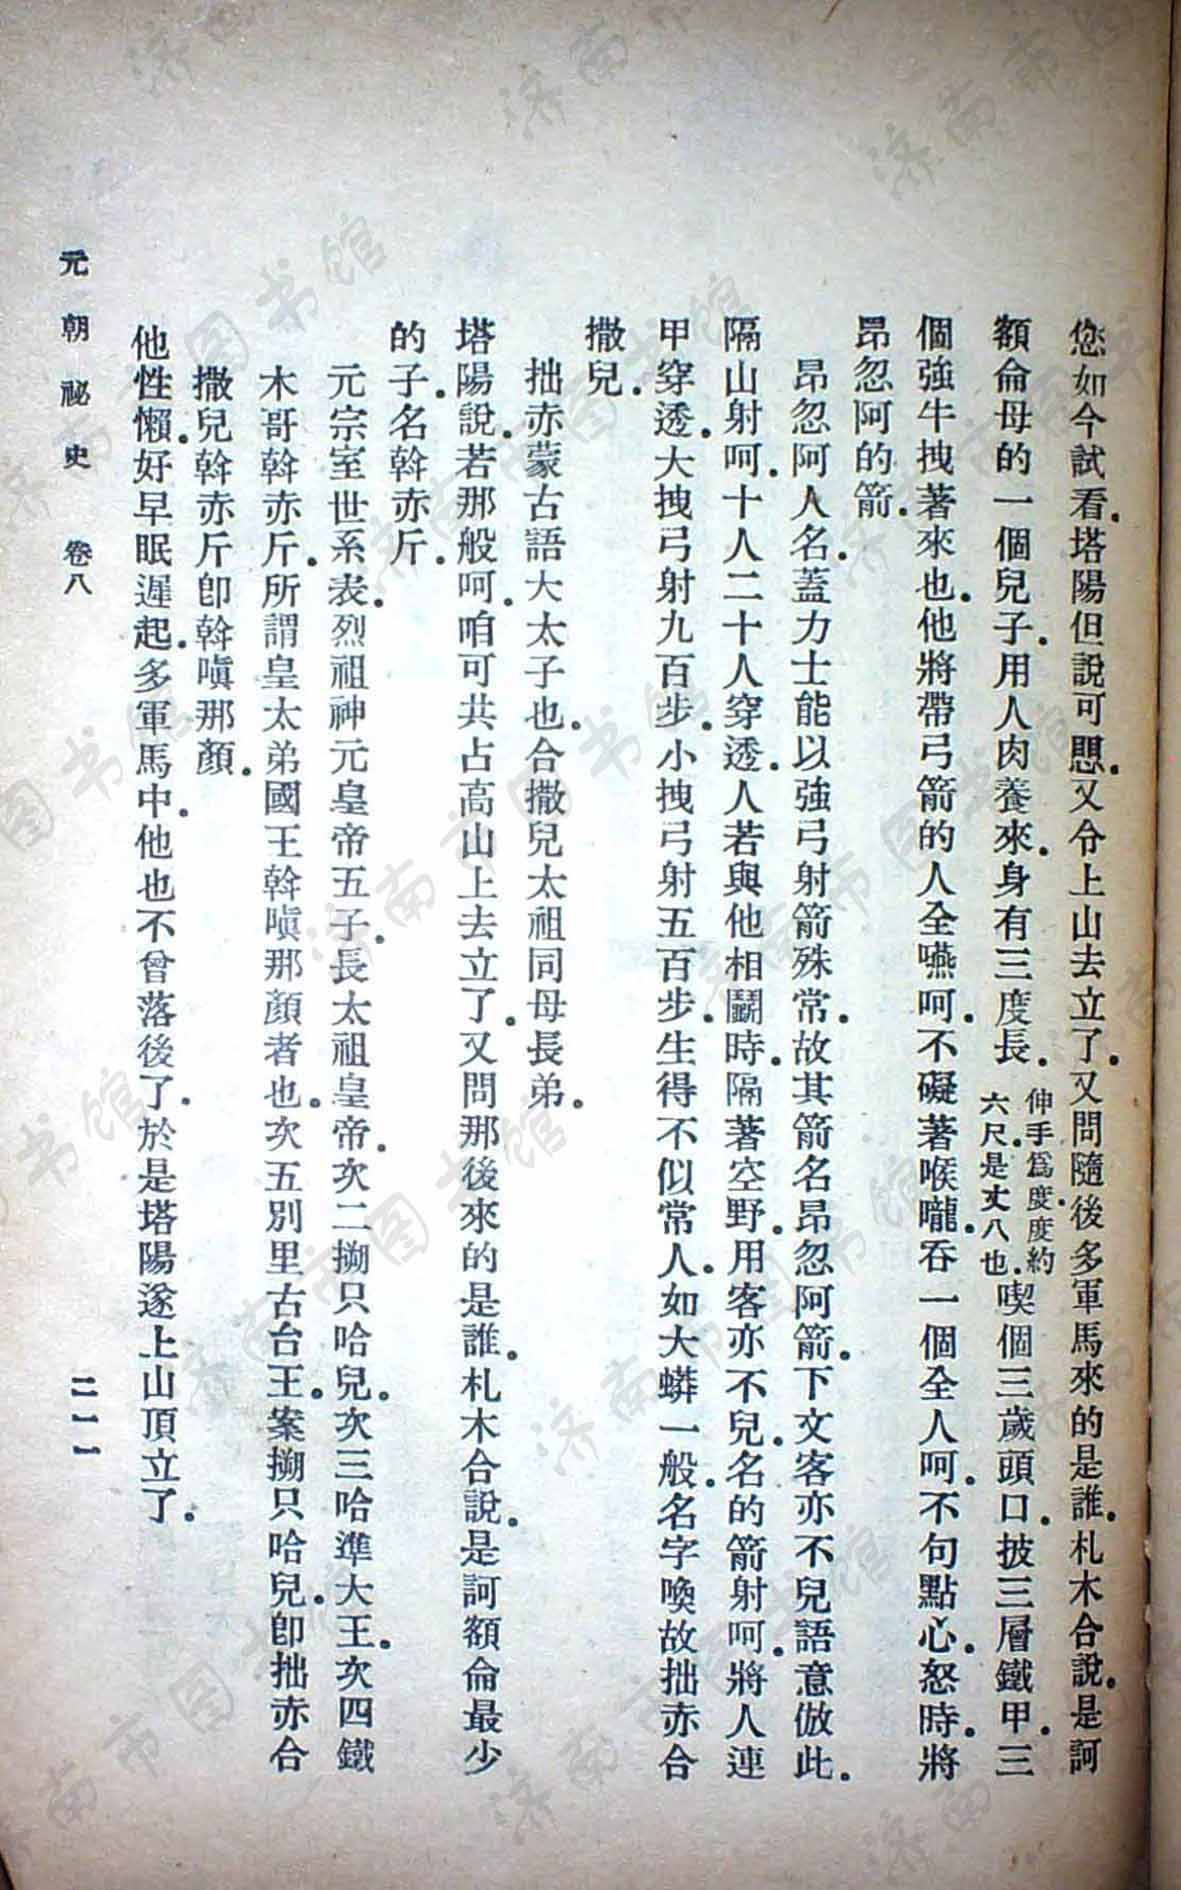 您如今試看。塔陽但說可㥿。又令上山去立了。又問隨後多軍馬來的是誰。札木合說。是訶
額侖母的一個兒子。用人肉養來。身有三度長。伸手爲度。度約六尺。是丈八也。喫個三歲頭口。披三層鐵甲。三
個強牛拽著來也。他將帶弓箭的人全嚥呵。不礙著喉嚨。吞一個全人呵。不句點心。怒時。將
昂忽阿的箭。
昂忽阿人名。蓋力士能以強弓射箭殊常。故其箭名昂忽阿箭。下文客亦不兒語意倣此。
隔山射呵。十人二十人穿透。人若與他相鬭時。隔著空野。用客亦不兒。名的箭射呵。將人連
甲穿透。大拽弓射九百步。小拽弓射五百步。生得不似常人。如大蟒一般。名字喚故拙赤合
撒兒。
拙赤蒙古語大太子也。合撒兒太祖同母長弟。
塔陽說。若那般呵。咱可共占高山上去立了。又問那後來的是誰。札木合說。是訶額侖最少
的子。名斡赤斤。
元宗室世系表。烈祖神元皇帝五子。長太祖皇帝。次二搠只哈兒。次三哈準大王。次四鐵
木哥斡赤斤。所謂皇太弟國王斡嗔那顏者也。次五別里古台王。案搠只哈兒。卽拙赤合
撒兒斡赤斤卽斡嗔那顏。
他性懶。好早眠遲起。多軍馬中。他也不曾落後了。於是塔陽遂上山頂立了。
元朝祕史 卷八 二一一
济南市图书馆